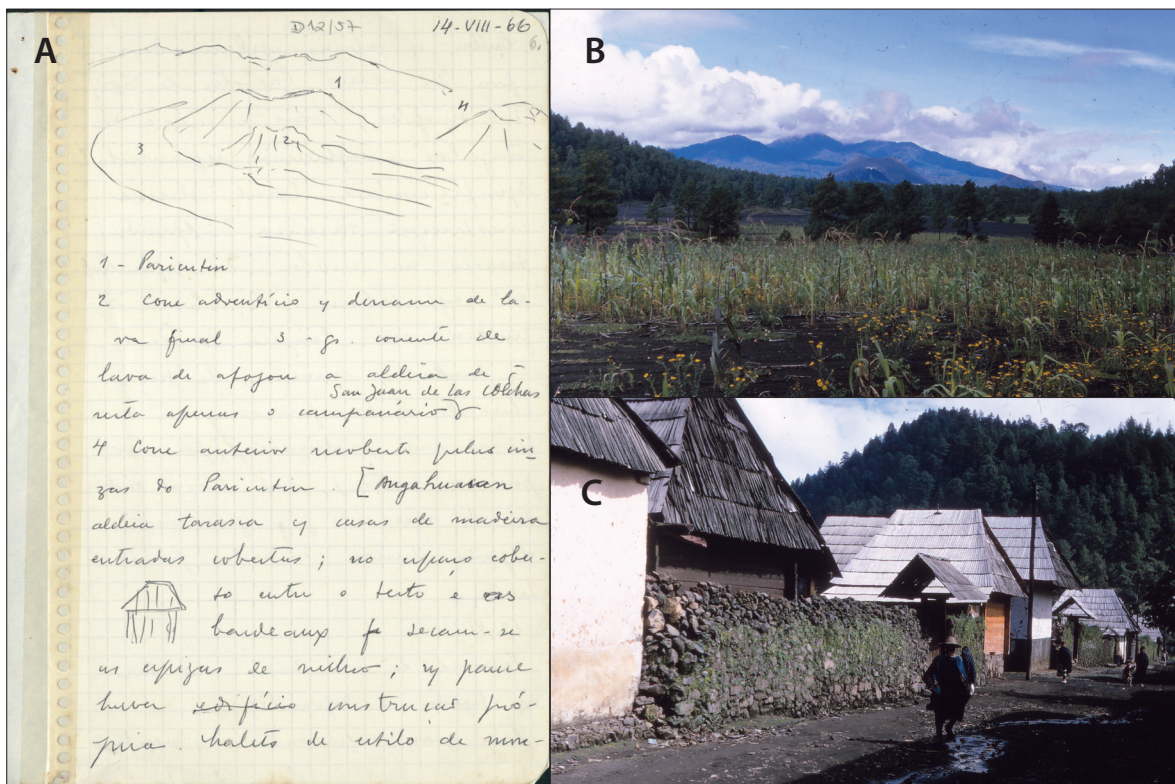 A
D12/57
14-VIII-66
6.
1
2
3
4
1 - Paricutin
2 cone adventício y derrame de la-
va final 3 - gr. corrente de
lava q afogou a aldeia de
San Juan de las Colchas
resta apenas o campanário
4 Cone anterior recoberto pelas cin-
zas do Paricutin. [Angahuan
aldeia tarasca y casas de madeira
entradas cobertas; no espaço cober-
to entre o tecto e os
bardeaux secam-se
as espigas de milho; parece
haver edifício construção pró-
pria. Chalets de estilo de mon-
B
C